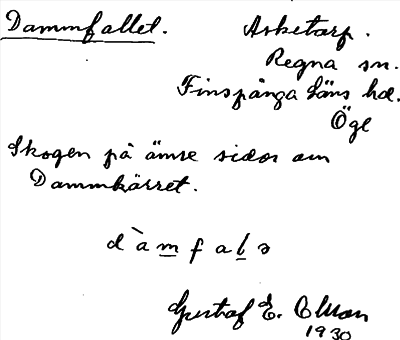 Dammfallet. Asketorp.
Regna sn.
Finspånga läns hd.
Ögl
Skogen på ömse sidor om
Dammkärret.
dàm̲fal̲s
Gustaf E. Olsson
1930